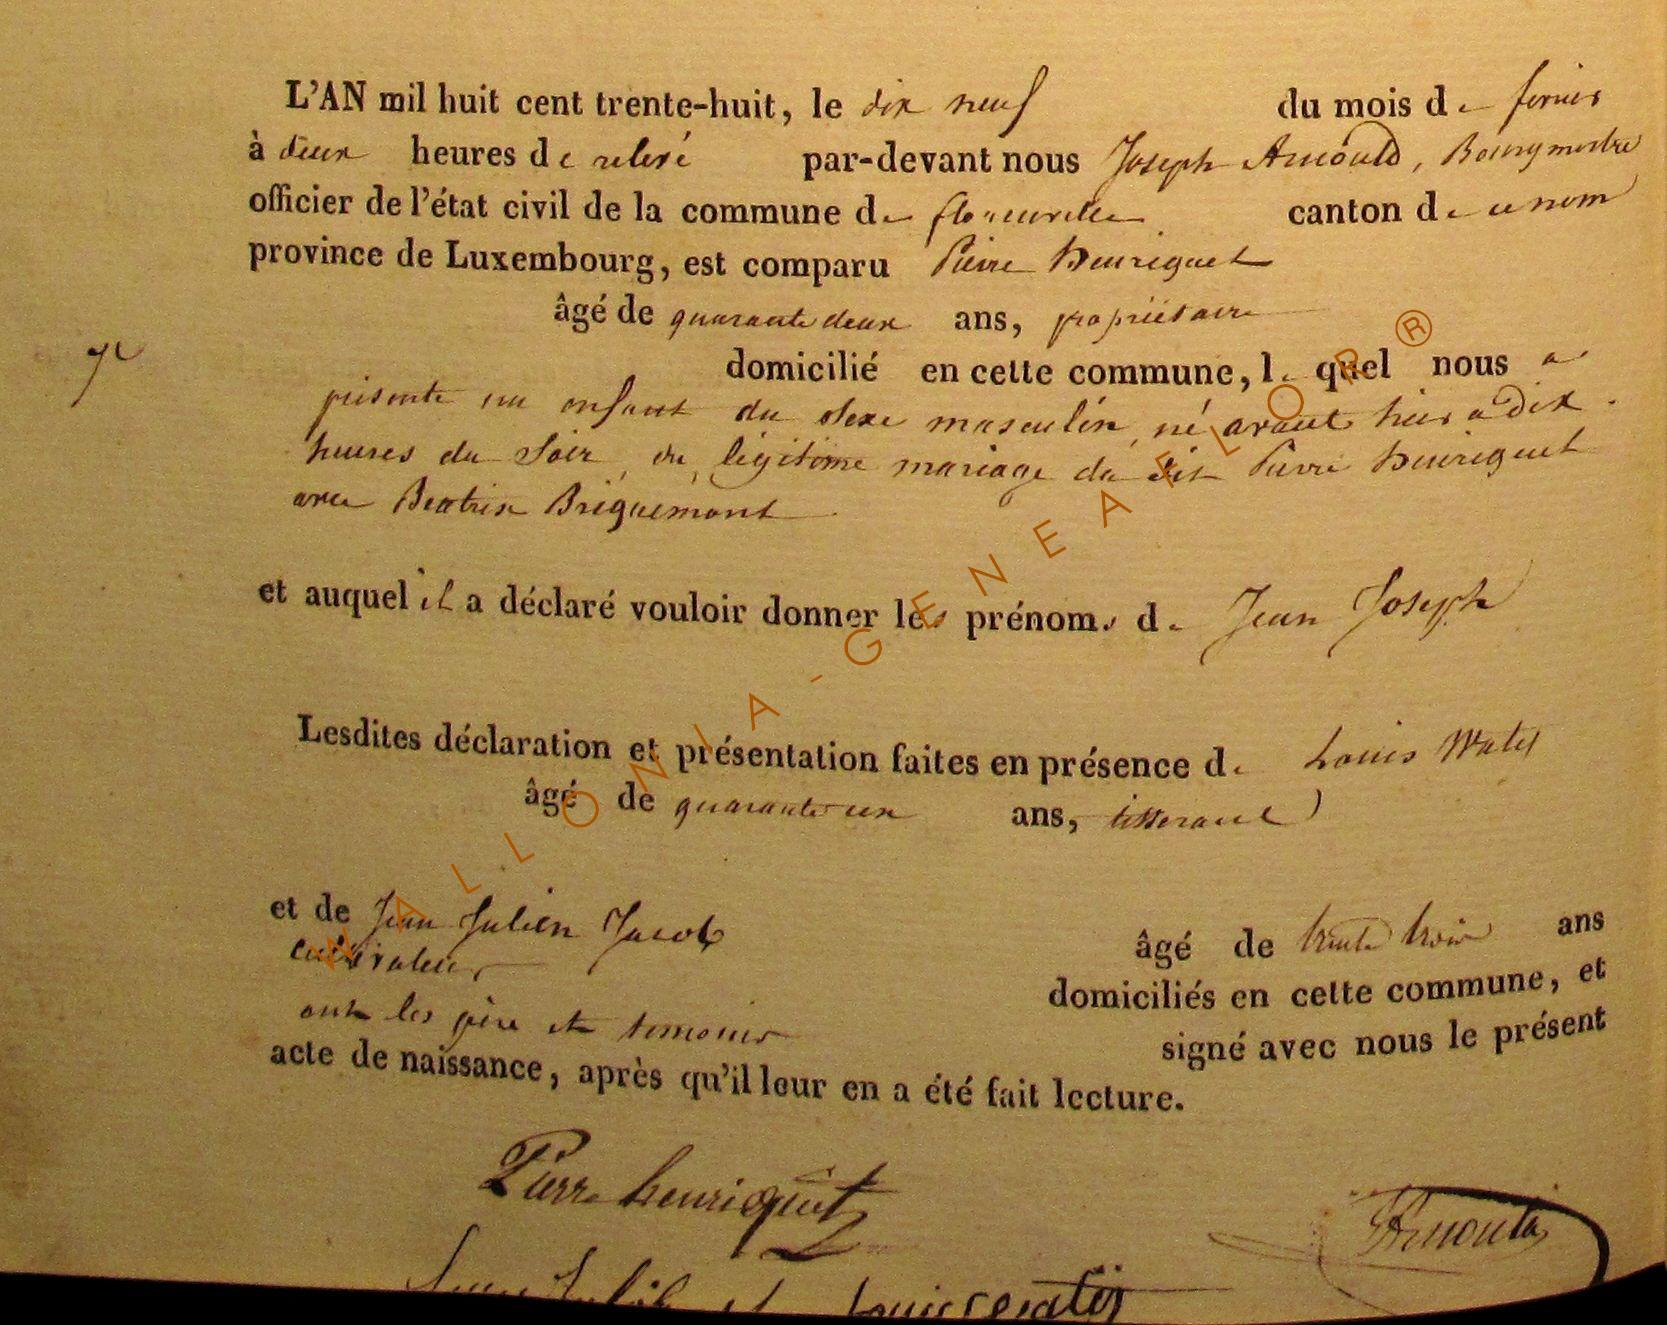 L'AN mil huit cent trente-huit, le dix neuf du mois de fevrier
à deux heures de relevé par-devant nous Joseph Arnould, Bourgmestre
officier de l'état civil de la commune de florenville canton de ce nom
province de Luxembourg, est comparu Pierre Henriquet
âgé de quarante deux ans, propriétaire
domicilié en cette commune, lequel nous a
présenté un enfant du sexe masculin, né avant hier a dix
heures du Soir, du légitime mariage du dit Pierre Henriquet
avec Beatrix Briquemont
et auquel il a déclaré vouloir donner les prénoms de Jean Joseph
Lesdites déclaration et présentation faites en présence de Louis Watel
âgé de quarante un ans, tisserand
et de Jean Julien Jacob âgé de trente trois ans
cultivateur domiciliés en cette commune, et
ont les père et temoins signé avec nous le présent
acte de naissance, après qu'il leur en a été fait lecture.
Pierre henriquet
Arnould
Louis
WALLONIA-GENEAFLOR®